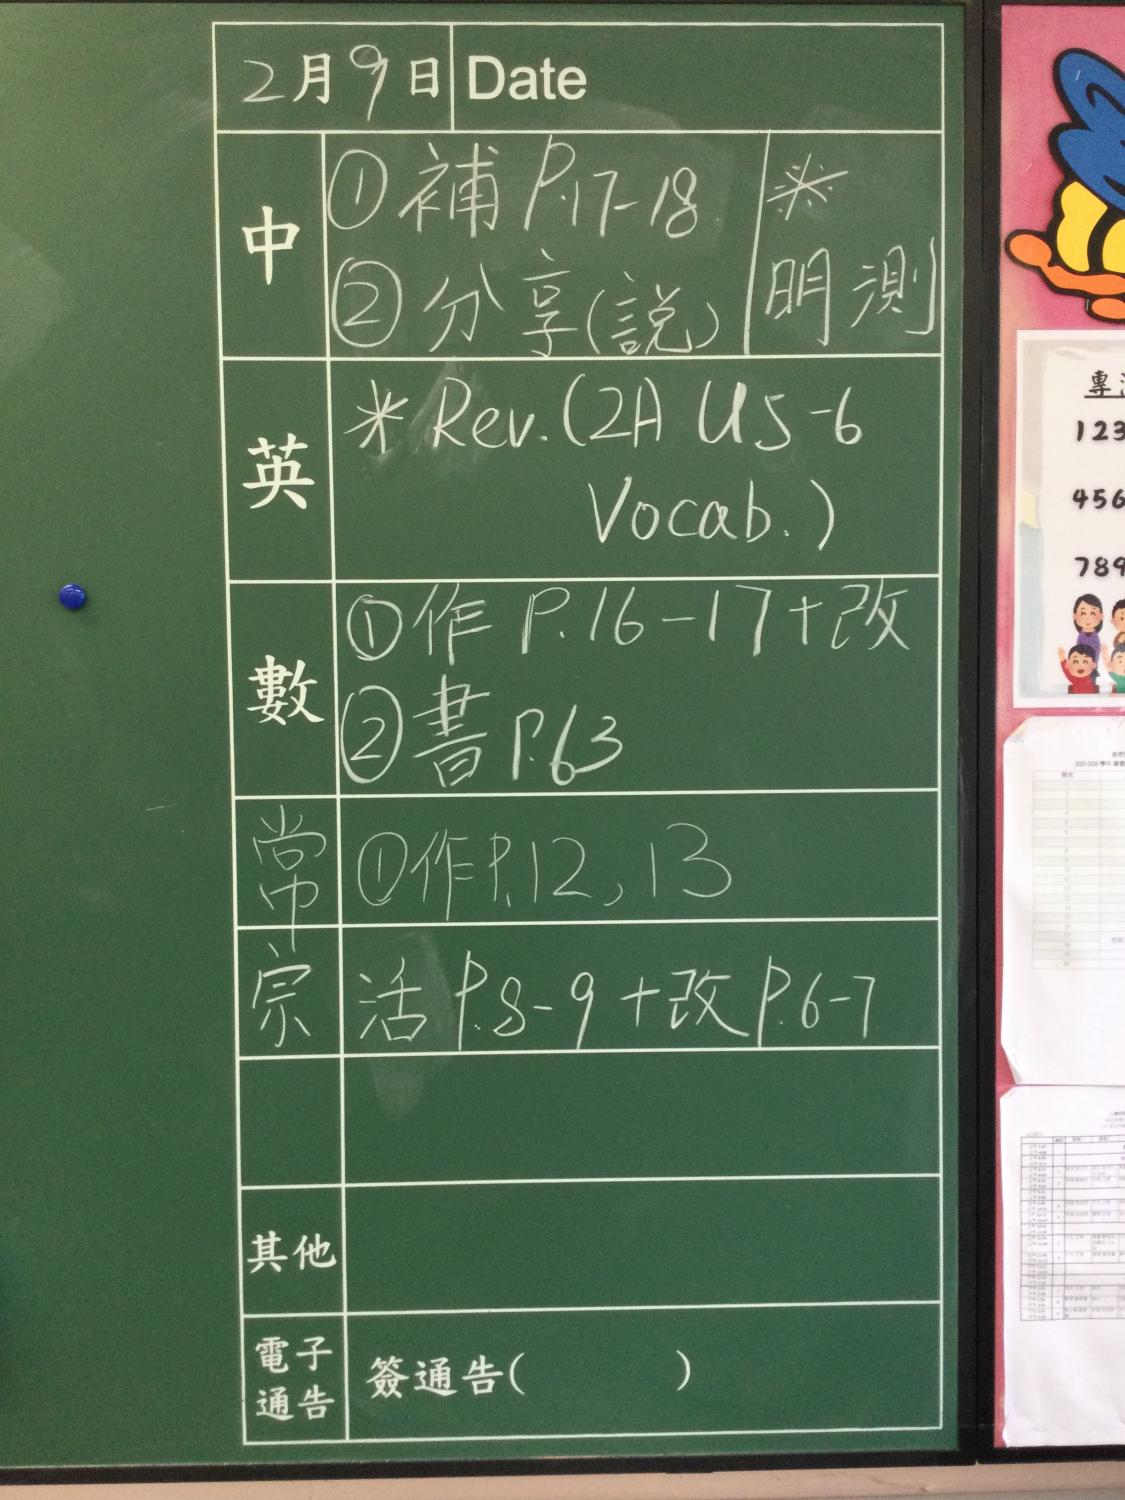 2月9日 Date
中
① 補 P.17-18
② 分享(説)
※
明測
英
* Rev. (2A U5-6
Vocab.)
數
① 作 P.16-17+改
② 書 P.63
常
① 作 P.12, 13
宗
活 P.8-9 +改 P.6-7
其他
電子
通告
簽通告( )
專
123
456
789